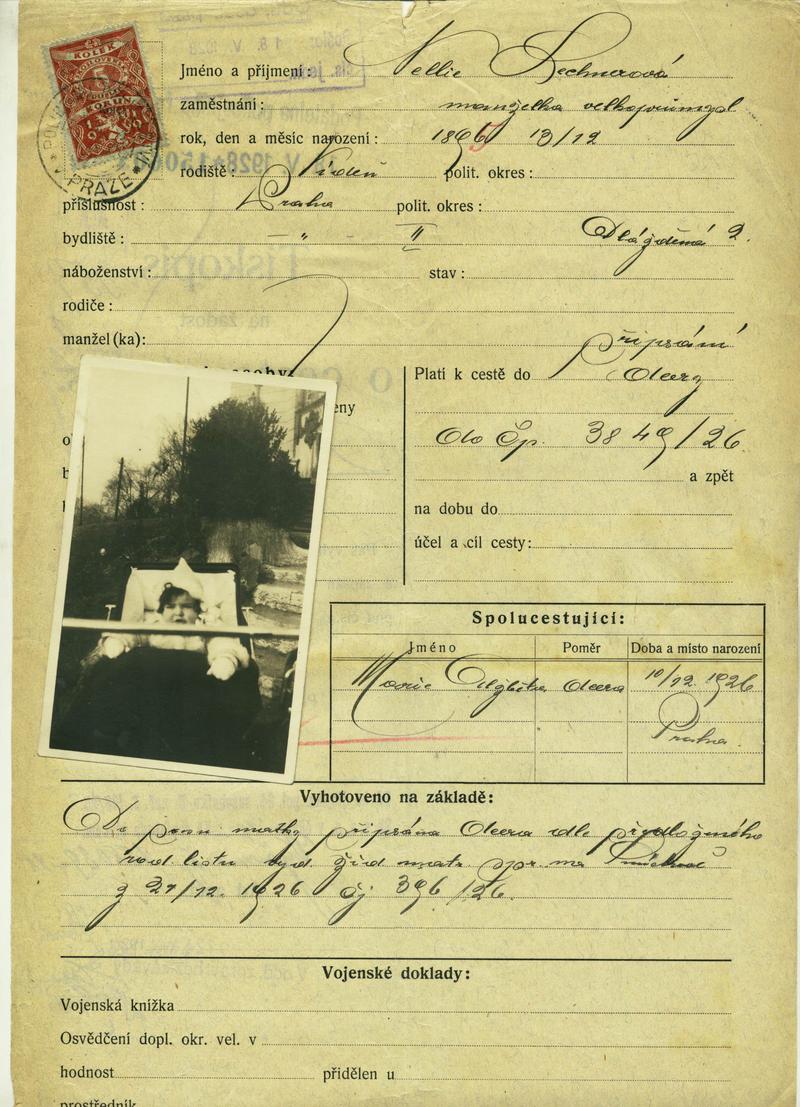 KOLEK
PRAZE
Jméno a příjmení: Nellie Lechnerová
zaměstnání: manželka velkoprůmysl
rok, den a měsíc narození: 1896 13/12
rodiště: Vídeň polit. okres:
příslušnost: Praha polit. okres:
bydliště: — " — " Dlážděná 2.
náboženství: stav:
rodiče:
manžel(ka):
připsání
Platí k cestě do dcery
do čp. 3849/26
a zpět
na dobu do
účel a cíl cesty:
Spolucestující:
Jméno Poměr Doba a místo narození
Marie Alžběta dcera 10/12 1926
Praha
Vyhotoveno na základě:
Do pasu matky připsána dcera dle předloženého
rod. listu vyd. žid. matr. spr. na Smíchově
z 27/12. 1926 čj 396/26.
Vojenské doklady:
Vojenská knížka
Osvědčení dopl. okr. vel. v
hodnost přidělen u
prostředník